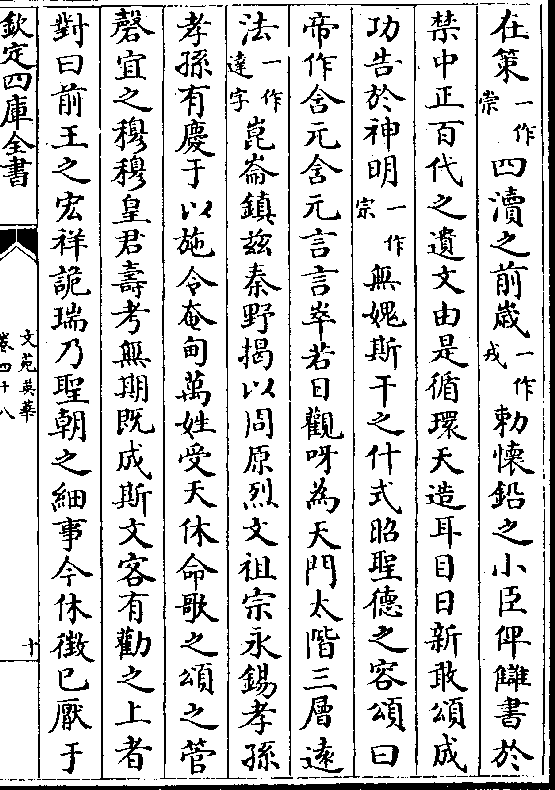 在策一作崇四瀆之前歲一作戎勅懷鉛之小臣俾讎書於
禁中正百代之遺文由是循環天造耳目日新敢頌成
功告於神明一作宗無媿斯干之什式昭聖德之容頌曰
帝作含元含元言言崒若日觀呀為天門太階三層遠
法一作達字崑崙鎮兹秦野揭以周原烈文祖宗永錫孝孫
孝孫有慶于以施令奄甸萬姓受天休命歌之頌之管
磬宜之穆穆皇君壽考無期既成斯文客有勸之上者
對曰前王之宏祥詭瑞乃聖朝之細事今休徵已厭于
欽定四庫全書
文苑英華
卷四十八
十